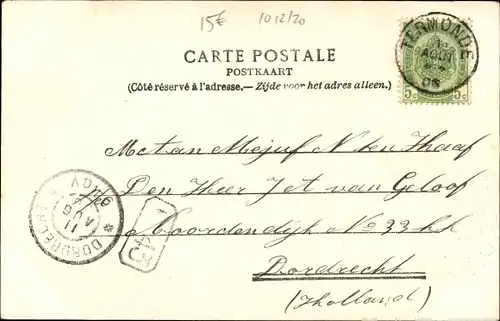 15€ 1012/20
CARTE POSTALE
POSTKAART
(Côté réservé à l'adresse.— Zijde voor het adres alleen.)
TERMONDE
AOUT
08
5c 5c
Met an Mejuf N ten Haaf
Den Heer Jot van Geloof
Noordendijk No 33
Dordrecht
(Holland)
DORDRECHT
11
AUG
43